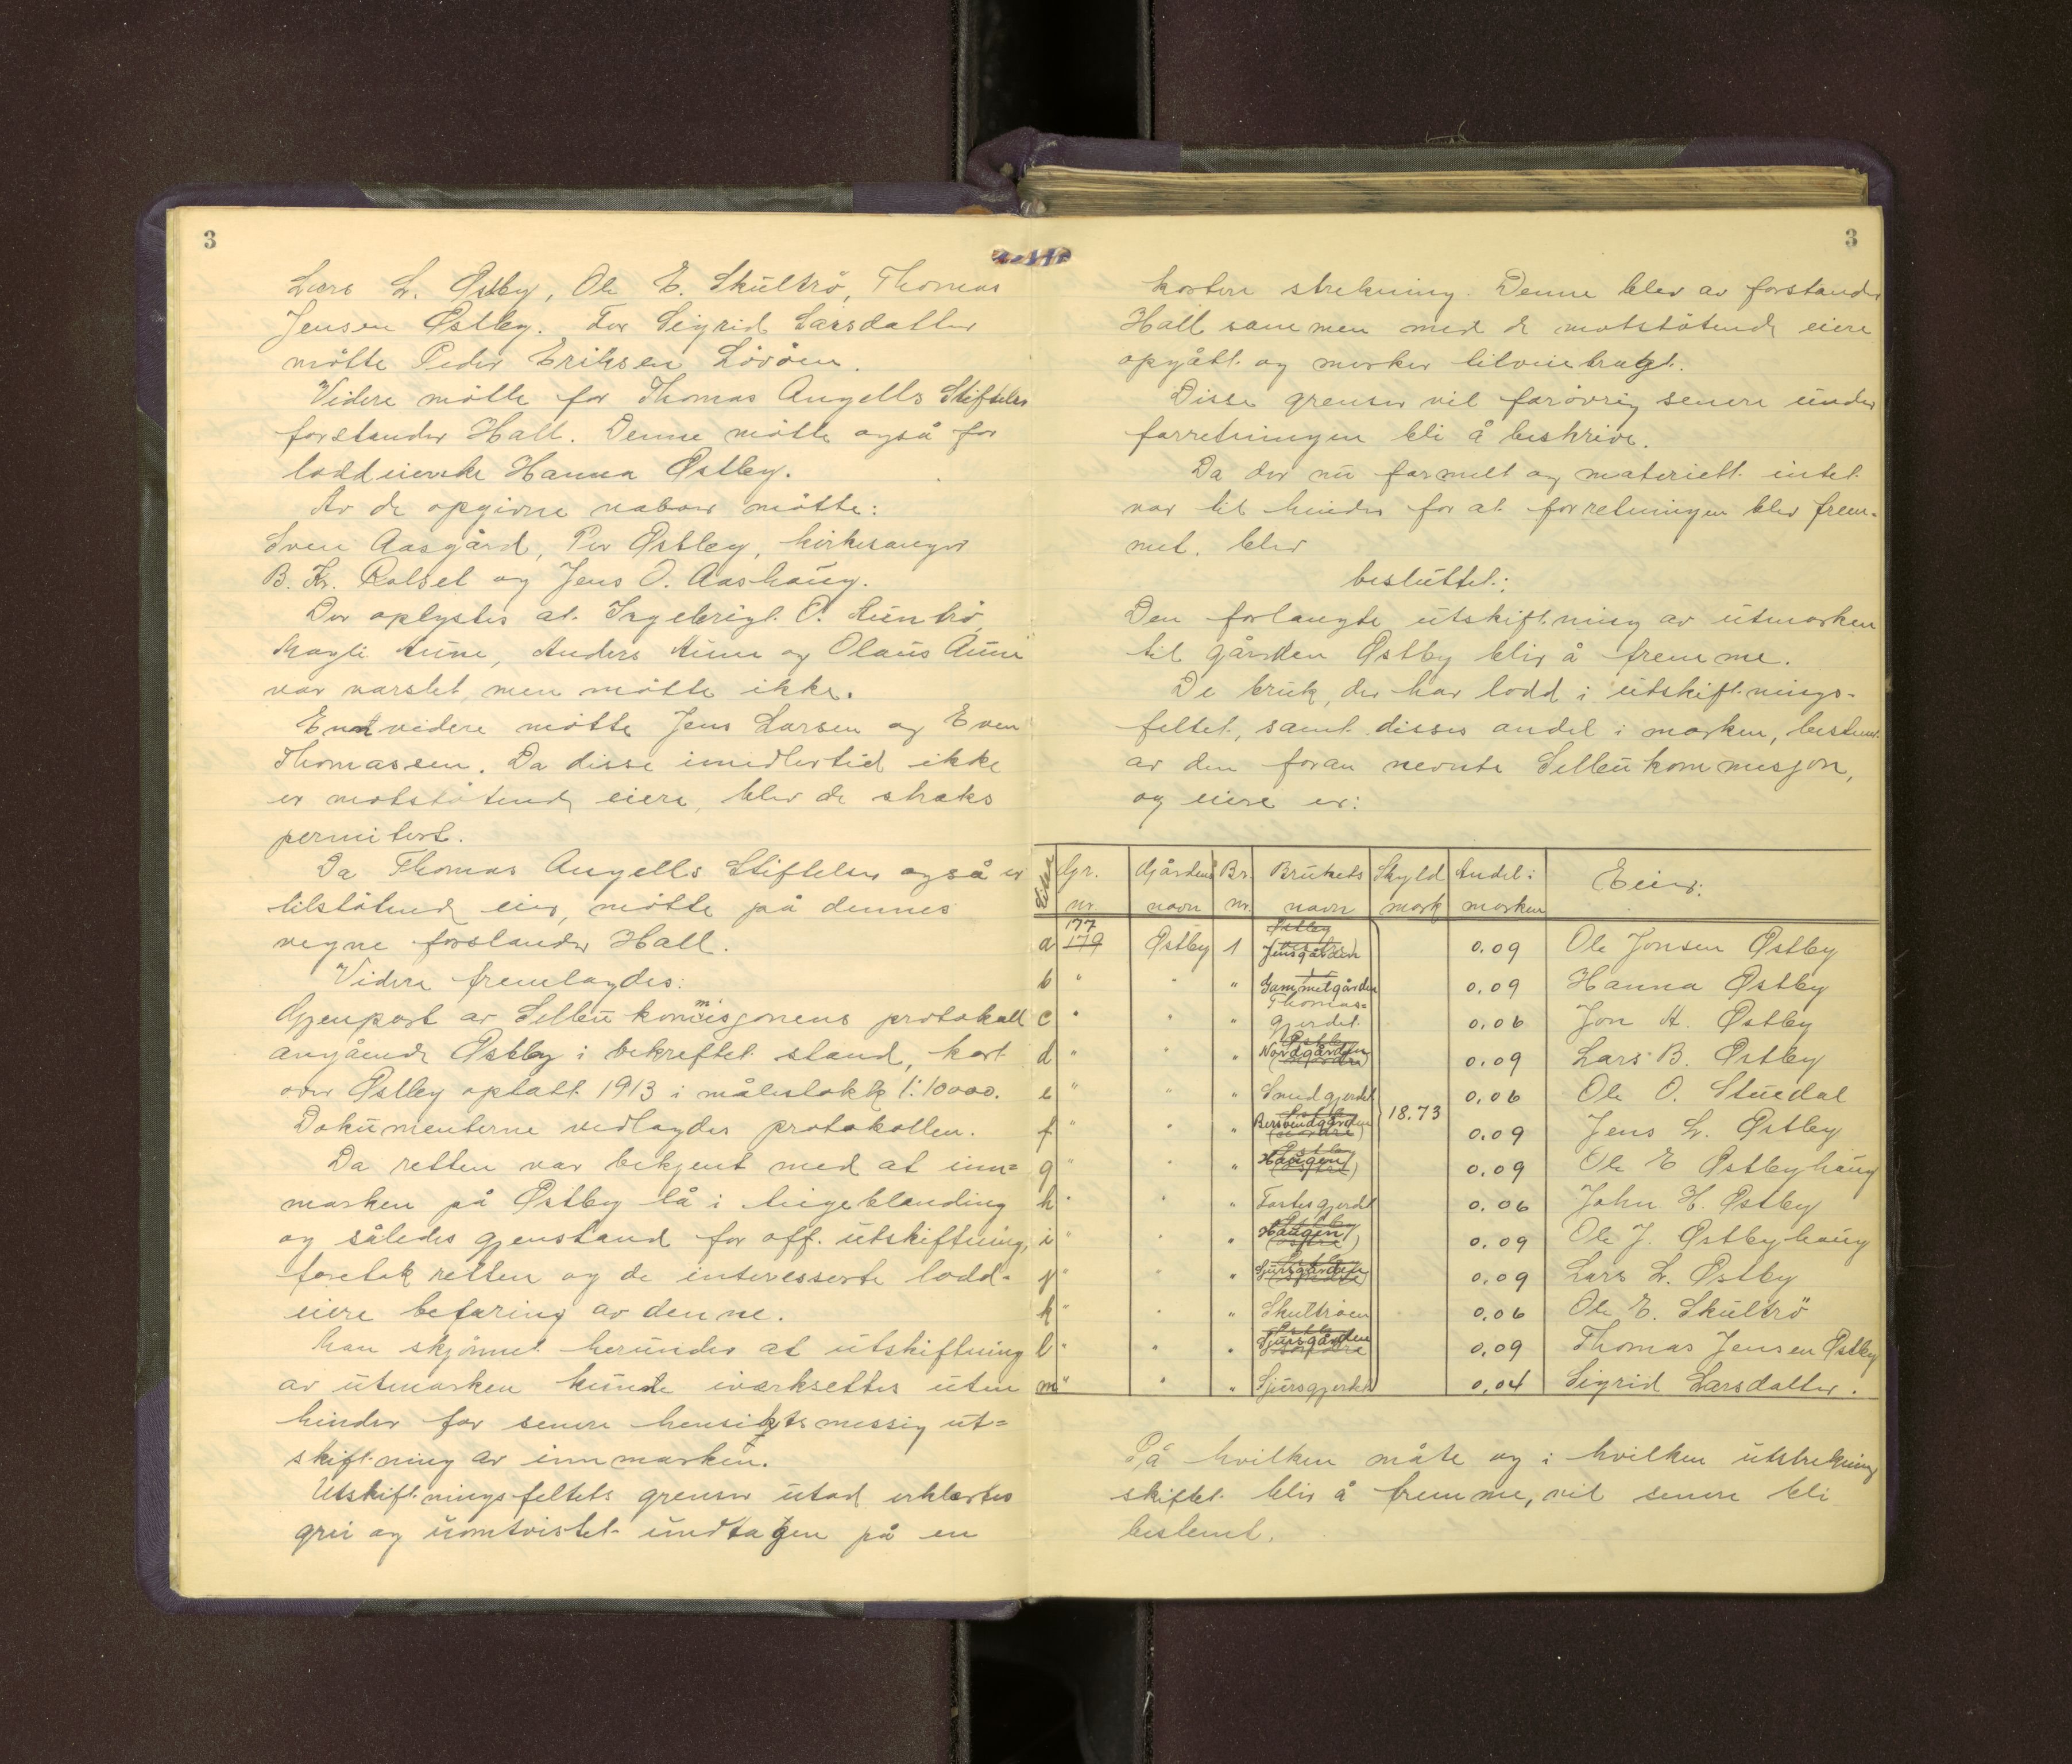 3
Lars L. Østby, Ole E. Skultrö, Thomas
Jensen Østby. For Sigrid Larsdatter
møtte Peder Eriksen Lövöen.
Videre møtte for Thomas Angells Stiftelser
forstander Hall. Denne møtte også for
loddeierske Hanna Østby.
Av de opgivne naboer møtte:
Sven Aasgård, Per Østby, kirkesanger
B. Kr. Rolset og Jens O. Aashaug.
Der oplystes at Ingebrigt O. Auntrö
Magli Aune, Anders Aune og Olaus Aune
var varslet men møtte ikke.
Endvidere møtte Jens Larsen og Even
Thomassen. Da disse imidlertid ikke
er motstötende eiere, blev de straks
permitert.
Da Thomas Angells Stiftelser også er
tilstötende eier, møtte på dennes
vegne forstander Hall.
Videre fremlagdes:
Gjenpart av Selbukommisjonens protokoll
angående Østby i bekreftet stand, kart
over Østby optatt 1913 i målestokk 1:10000.
Dokumenterne vedlagdes protokollen.
Da retten var bekjent med at inn=
marken på Østby lå i teigeblanding
og således gjenstand for off. utskiftning,
foretok retten og de interesserte lodd-
eiere befaring av denne.
Man skjønnet herunder at utskiftning
av utmarken kunde iverksettes uten
hinder for senere hensiktsmessig ut=
skiftning av innmarken.
Utskiftningsfeltets grenser utad erklærtes
grei og uomtvistet undtagen på en
3
kortere strekning. Denne blev av forstander
Hall sammen med de motstötende eiere
opgått og merker tilveiebragt.
Disse grenser vil forövrig senere under
forretningen bli å beskrive.
Da der nu formelt og materielt intet
var til hinder for at forretningen blev frem-
met. blev
besluttet:
Den forlangte utskiftning av utmarken
til gården Østby blir å fremme.
De bruk, der har lodd i utskiftnings-
feltet, samt disses andel i marken, bestemt
av den foran nevnte Selbukommisjon,
og eiere er:
Litra Gr. nr. Gårdens navn Br. nr. Brukets navn Skyld mark Andel i marken Eier:
a 177 179 Østby 1 Østby Jensgården 0.09 Ole Jonsen Østby
b " " " Gammelgården 0.09 Hanna Østby
c " " " Thomas= gjerdet 0.06 Jon A. Østby
d " " " Østby Nordgården 0.09 Lars B. Østby
e " " " Smedgjerdet 0.06 Ole O. Stuedal
f " " " Østby Bersvendgården 18.73 0.09 Jens L. Østby
g " " " Østby Haugen 0.09 Ole E Østbyhaug
h " " " 0.06 John H. Østby
i " " " Østby Haugen 0.09 Ole J. Østbyhaug
j " " " Østby Sjursgården 0.09 Lars L. Østby
k " " " Skultröen 0.06 Ole E. Skultrö
l " " " Østby Sjursgården 0.09 Thomas Jensen Østby
m " " " Sjursgjerdet 0.04 Sigrid Larsdatter.
På hvilken måte og i hvilken utstrekning
skiftet blir å fremme, vil senere bli
bestemt.